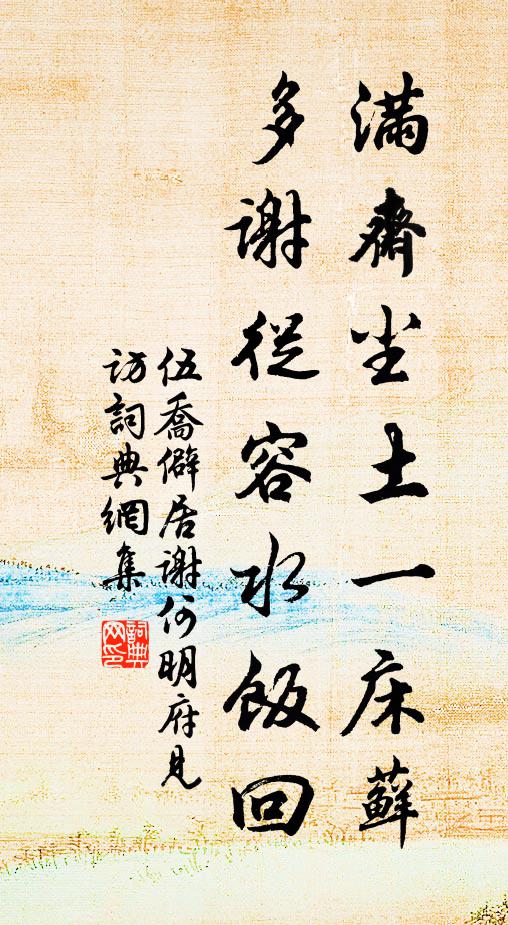 滿齋塵土一床蘚
多謝從容水飯回
伍喬僻居謝何明府見
訪詞典網集
詞典
网印